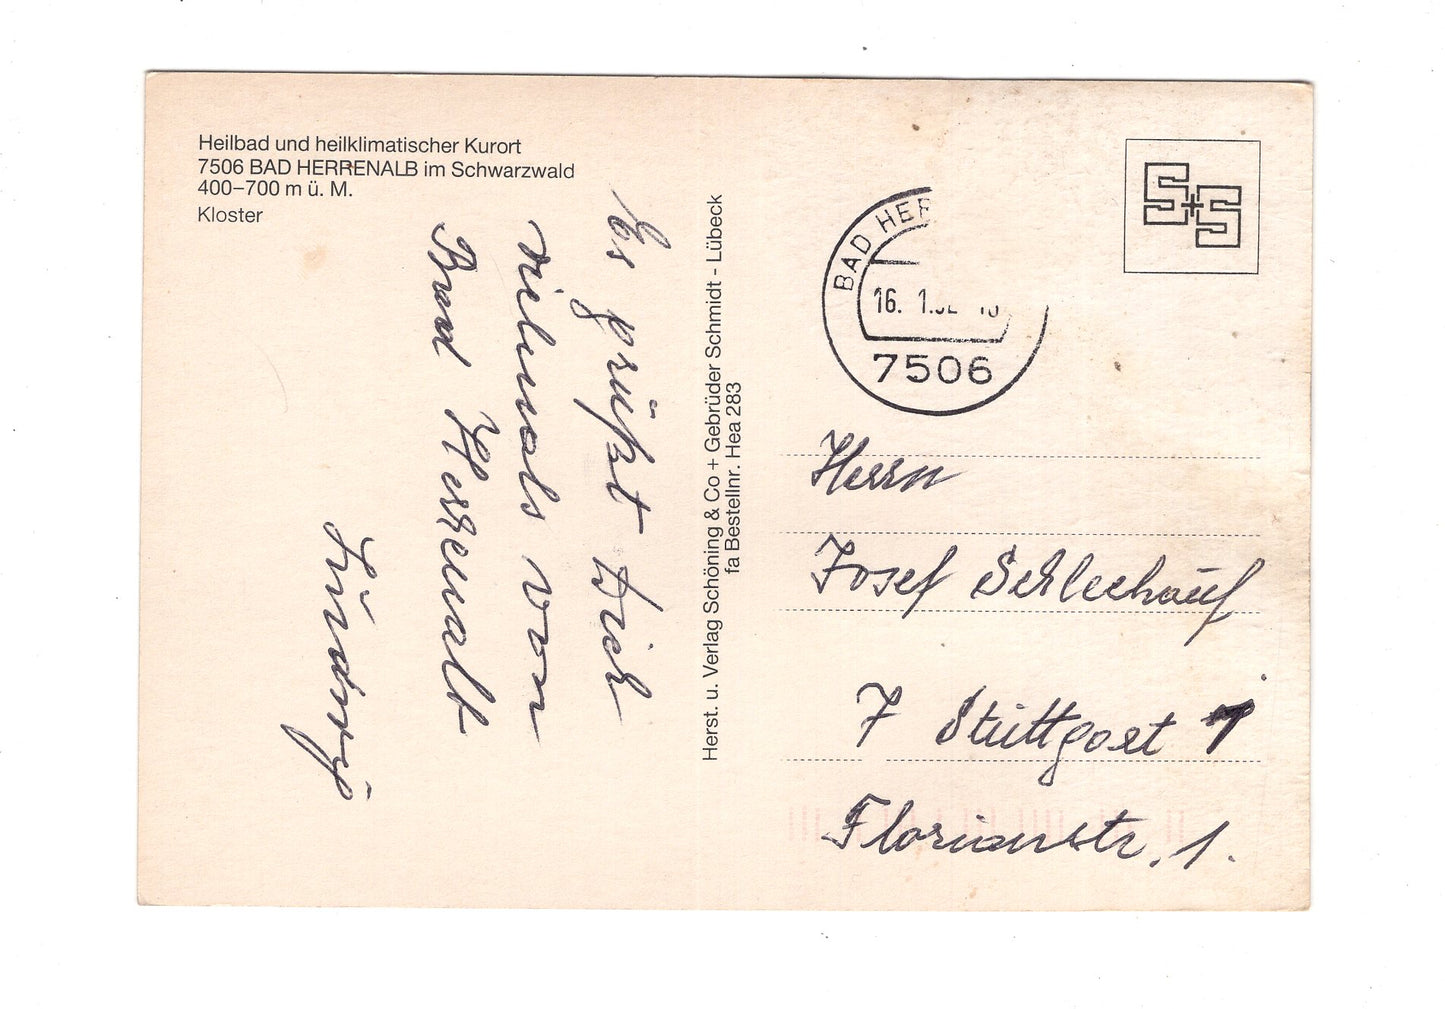 Heilbad und heilklimatischer Kurort
7506 BAD HERRENALB im Schwarzwald
400–700 m ü. M.
Kloster
Es grüßt Dich
vielmals von
Bad Herrenalb
Herst. u. Verlag Schöning & Co + Gebrüder Schmidt - Lübeck
fa Bestellnr. Hea 283
S+S
BAD HER
16. 1.
7506
Herrn
Josef Schlechauf
7 Stuttgart 1
Florianstr. 1.